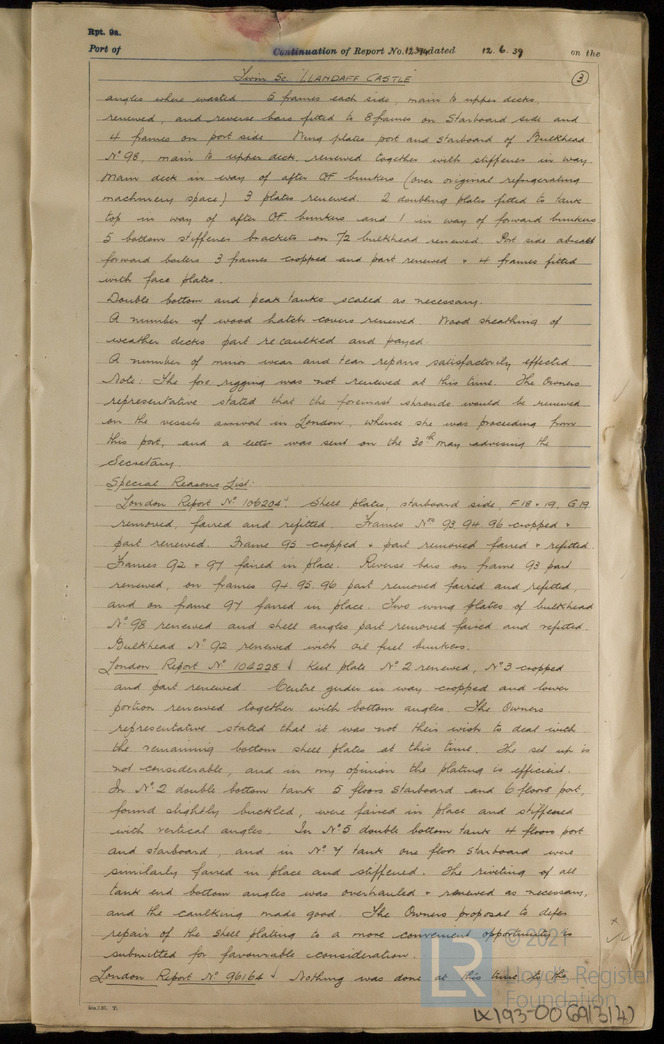 Rpt. 9a.
Port of Continuation of Report No. dated 12.6.39 on the
Twin Sc. "LLANDAFF CASTLE" 3
angles where wasted 5 frames each side, main to upper decks,
renewed, and reverse bars fitted to 8 frames on Starboard side and
4 frames on port side Wing plates port and starboard of Bulkhead
No 98, main to upper deck renewed together with stiffeners in way.
Main deck in way of after OF bunkers (over original refrigerating
machinery space) 3 plates renewed. 2 doubling plates fitted to tank
top in way of after OF bunkers and 1 in way of forward bunkers
5 bottom stiffener brackets on 72 bulkhead renewed. Port side abreast
forward boilers 3 frames cropped and part renewed + 4 frames fitted
with face plates.
Double bottom and peak tanks scaled as necessary.
A number of wood hatch covers renewed. Wood sheathing of
weather decks part recaulked and payed.
A number of minor wear and tear repairs satisfactorily effected
Note: The fore rigging was not renewed at this time. The Owners
representative stated that the foremast shrouds would be renewed
on the vessels arrival in London, whence she was proceeding from
this port, and a letter was sent on the 30th May advising the
Secretary.
Special Reasons List:
London Report No 106204 Shell plates, starboard side, F18 + 19, G19
removed, faired and refitted. Frames Nos 93 94 96 cropped +
part renewed. Frame 95 cropped + part removed faired + refitted.
Frames 92 + 97 faired in place. Reverse bars on frame 93 part
renewed, on frames 94. 95. 96 part removed faired and refitted,
and on frame 97 faired in place. Two wing plates of bulkhead
No 98 renewed and shell angles part removed faired and refitted.
Bulkhead No 92 renewed with oil fuel bunkers.
London Report No 104228 Keel plate No 2 renewed, No 3 cropped
and part renewed. Centre girder in way cropped and lower
portion renewed together with bottom angles. The Owners
representative stated that it was not their wish to deal with
the remaining bottom shell plates at this time. The set up is
not considerable, and in my opinion the plating is efficient.
In No 2 double bottom tank 5 floors starboard and 6 floors port,
found slightly buckled, were faired in place and stiffened
with vertical angles. In No 5 double bottom tank 4 floors port
and starboard, and in No 7 tank one floor starboard were
similarly faired in place and stiffened. The riveting of all
tank end bottom angles was overhauled + renewed as necessary,
and the caulking made good. The Owners proposal to defer
repair of the shell plating to a more convenient opportunity is
submitted for favourable consideration.
London Report No 96164 Nothing was done at this time to the
© 2021
LR Lloyd's Register
Foundation